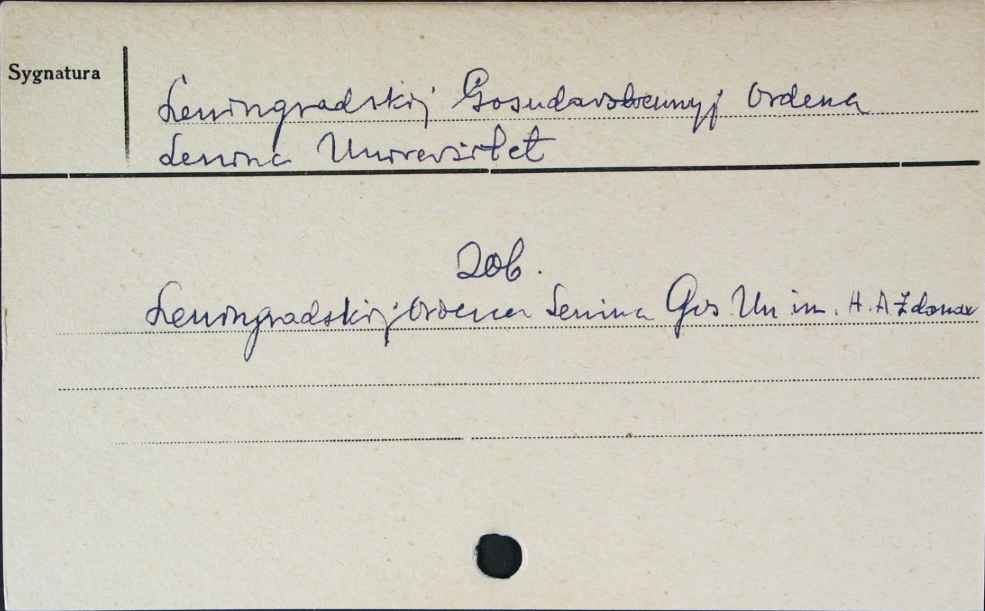 Sygnatura
Leningradskij Gosudarstvennyj Ordena
Lenina Universitet
Zob.
Leningradskij Ordena Lenina Gos Un im. H. A Zdanov